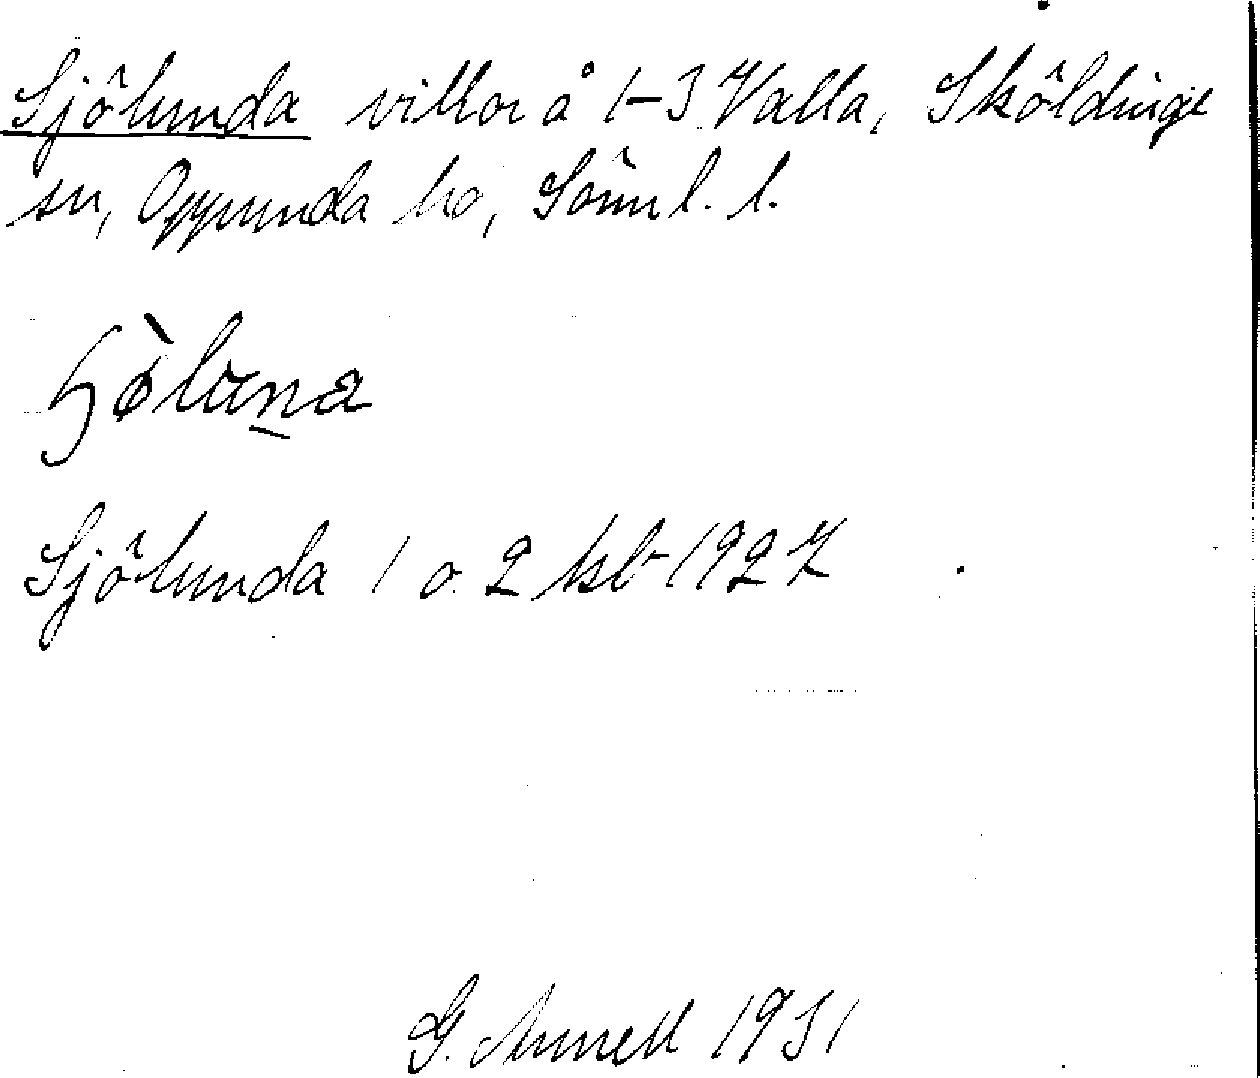 Sjölunda villor å 1-3 Valla, Sköldinge
sn, Oppunda hd, Sörml. l.
ʃø̀luṉa
Sjölunda 1 o. 2 kb 1927
G. Annell 1931